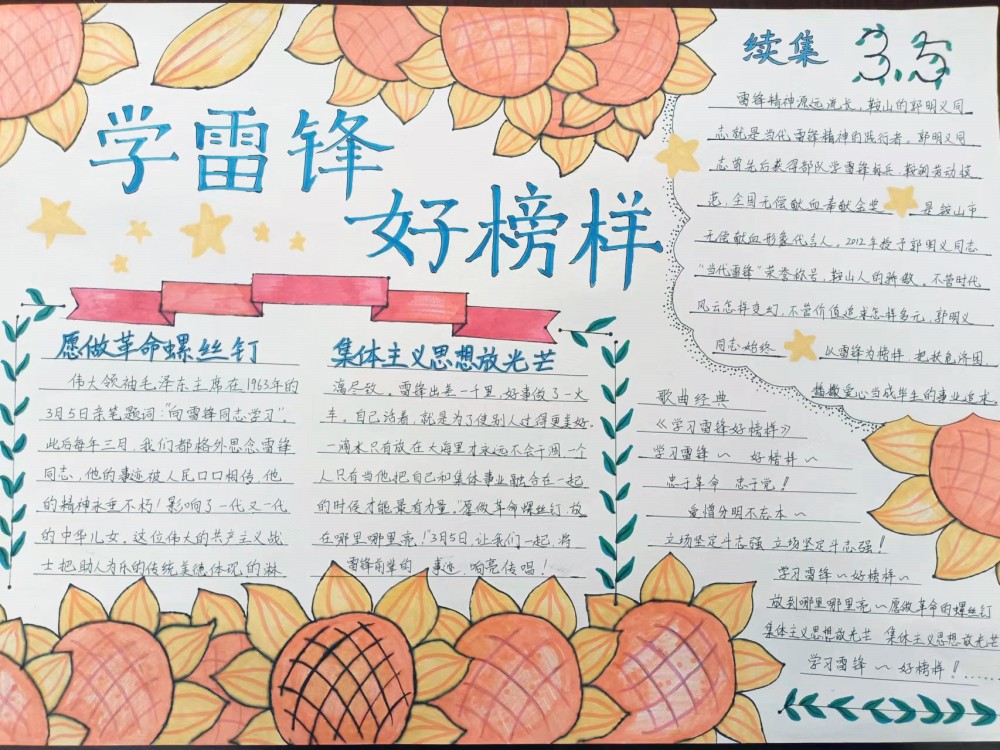 学雷锋
好榜样
愿做革命螺丝钉
伟大领袖毛泽东主席在1963年的
3月5日亲笔题词:"向雷锋同志学习".
此后每年三月,我们都格外思念雷锋
同志,他的事迹被人民口口相传,他
的精神永垂不朽!影响了一代又一代
的中华儿女,这位伟大的共产主义战
士把助人为乐的传统美德体现的淋
集体主义思想放光芒
漓尽致。雷锋出差一千里,好事做了一火
车。自己活着,就是为了使别人过得更美好.
一滴水只有放在大海里才永远不会干涸,一个
人只有当他把自己和集体事业融合在一起
的时候才能最有力量。愿做革命螺丝钉,放
在哪里哪里亮!"3月5日,让我们一起,将
雷锋前辈的 事迹,响亮传唱!
续集
雷锋精神源远流长,鞍山的郭明义同
志就是当代雷锋精神的践行者。郭明义同
志曾先后获得部队学雷锋标兵、鞍钢劳动模
范,全国无偿献血奉献金奖 是鞍山市
无偿献血形象代言人。2012年授予郭明义同志
"当代雷锋"荣誉称号,鞍山人的骄傲。不管时代
风云怎样变幻,不管价值追求怎样多元,郭明义
同志始终 以雷锋为榜样 把扶危济困
播撒爱心当成毕生的事业追求
歌曲经典
《学习雷锋好榜样》
学习雷锋~ 好榜样~
忠于革命 忠于党!
爱憎分明不忘本~
立场坚定斗志强 立场坚定斗志强!
学习雷锋~好榜样~
放到哪里哪里亮~愿做革命的螺丝钉
集体主义思想放光芒 集体主义思想放光芒
学习雷锋 ~ 好榜样!......